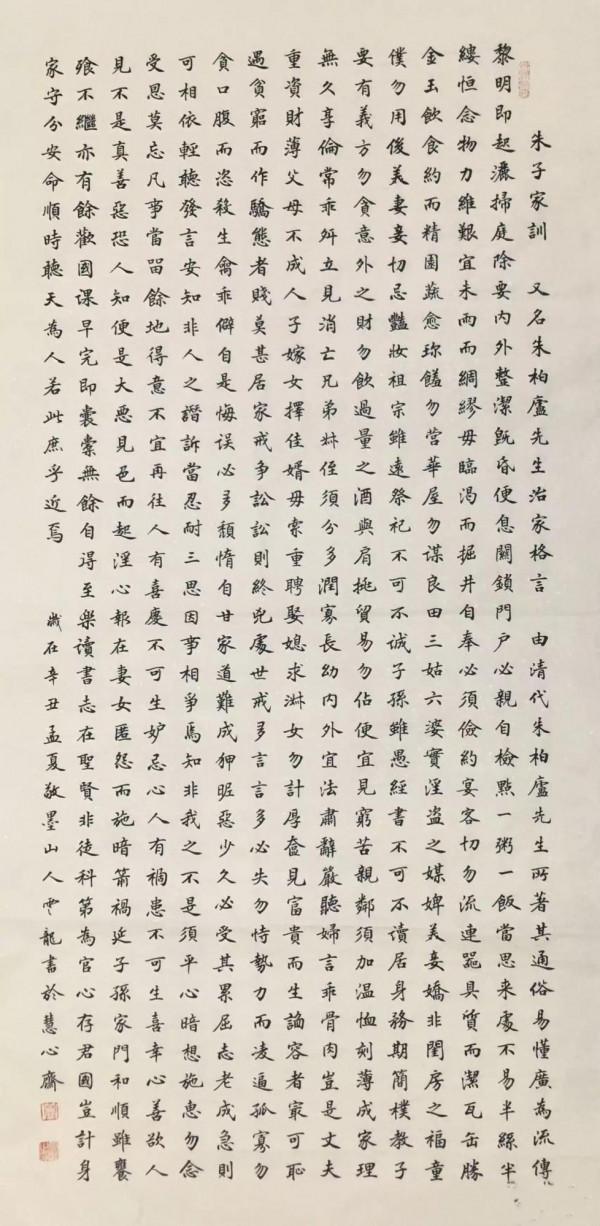 朱子家訓　又名朱柏廬先生治家格言　由清代朱柏廬先生所著其通俗易懂廣為流傳
黎明即起灑掃庭除要內外整潔既昏便息關鎖門戶必親自檢點一粥一飯當思来處不易半絲半
縷恒念物力維艱宜未雨而綢繆毋臨渴而掘井自奉必須儉約宴客切勿流連器具質而潔瓦缶勝
金玉飲食約而精園蔬愈珍饈勿營華屋勿謀良田三姑六婆實淫盗之媒婢美妾嬌非閨房之福童
僕勿用俊美妻妾切忌豔妝祖宗雖遠祭祀不可不誠子孫雖愚經書不可不讀居身務期簡樸教子
要有義方勿貪意外之財勿飲過量之酒與肩挑貿易勿佔便宜見窮苦親鄰須加温恤刻薄成家理
無久享倫常乖舛立見消亡兄弟叔侄須分多潤寡長幼內外宜法肅辭嚴聽婦言乖骨肉豈是丈夫
重資財薄父母不成人子嫁女擇佳婿毋索重聘娶媳求淑女勿計厚奩見富貴而生諂容者最可恥
遇貧窮而作驕態者賤莫甚居家戒争訟訟則終兇處世戒多言言多必失勿恃勢力而凌逼孤寡勿
貪口腹而恣殺生禽乖僻自是悔误必多頹惰自甘家道難成狎昵惡少久必受其累屈志老成急則
可相依輕聽發言安知非人之譖訴當忍耐三思因事相爭焉知非我之不是須平心暗想施惠勿念
受恩莫忘凡事當留餘地得意不宜再往人有喜慶不可生妒忌心人有禍患不可生喜幸心善欲人
見不是真善惡恐人知便是大悪見色而起淫心報在妻女匿怨而施暗箭禍延子孫家門和順雖饔
飧不繼亦有餘歡國课早完即囊橐無餘自得至樂讀書志在聖賢非徒科第為官心存君國豈計身
家守分安命順時聽天為人若此庶乎近焉　歲在辛丑孟夏敬墨山人雲龍書於慧心齋